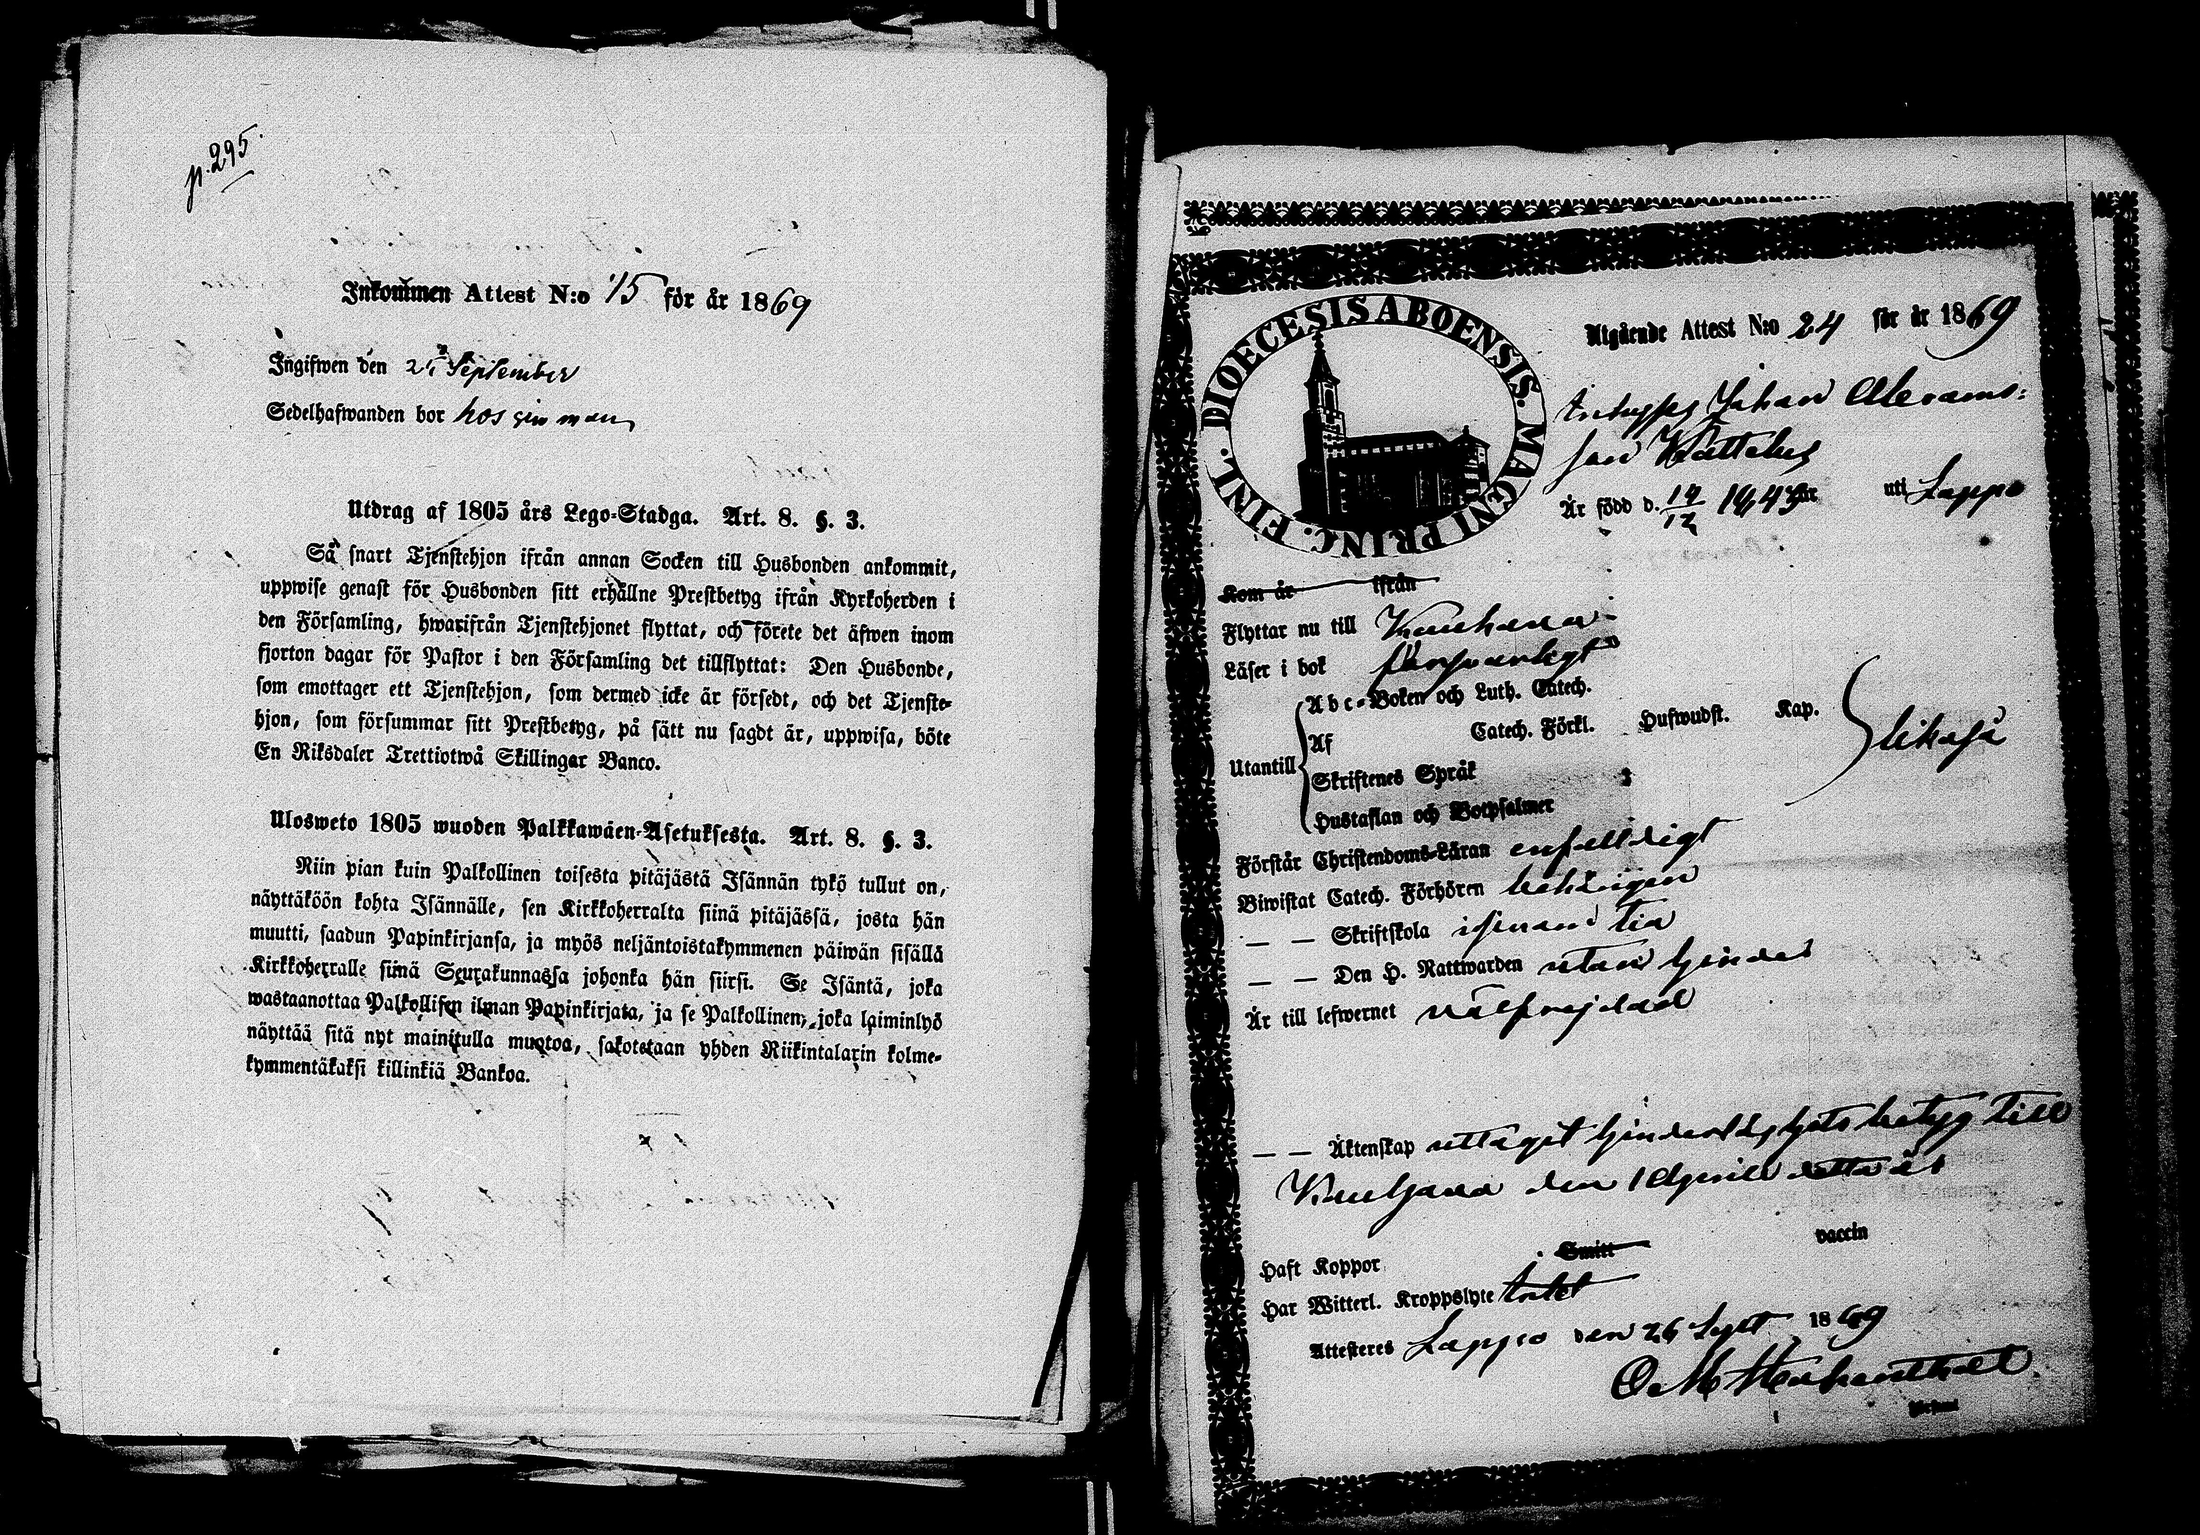 p. 295.
Inkommen Attest N:o 15 för år 1869
Ingifwen den September
Sedelhafwanden bor hos sin man
Utdrag af 1805 års Lego-Stadga. Art. 8. §. 3.
Så snart Tjenstehjon ifrån annan Socken till Husbonden ankommit,
uppwise genast för Husbonden sitt erhållne Prestbetyg ifrån Kyrkoherden i
den Församling, hwarifrån Tjenstehjonet flyttat, och förete det äfwen inom
fjorton dagar för Pastor i den Församling det tillflyttat: Den Husbonde,
som emottager ett Tjenstehjon, som dermed icke är försedt, och det Tjenste-
hjon, som försummar sitt Prestbetyg, på sätt nu sagdt är, uppwisa, böte
En Riksdaler Trettiotwå Skillingar Banco.
Ulosweto 1805 wuoden Palkkawäen-Asetuksesta. Art. 8. §. 3.
Niin pian kuin Palkollinen toisesta pitäjästä Isännän tykö tullut on,
näyttäköön kohta Isännälle, sen Kirkkoherralta siinä pitäjässä, josta hän
muutti, saadun Papinkirjansa, ja myös neljäntoistakymmenen päiwän sisällä
Kirkkoherralle siinä Seurakunnassa johonka hän siirsi. Se Isäntä, joka
wastaanottaa Palkollisen ilman Papinkirjata, ja se Palkollinen, joka laiminlyö
näyttää sitä nyt mainitulla muotoa, sakotetaan yhden Riikintalarin kolme-
kymmentäkaksi killinkiä Bankoa.
DIOECESIS ABOENSIS. MAGNI PRINC. FINL.
Utgående Attest N:o 24 för år 1869
Johan Abrams:
son
Är född d. 12 1843 här uti Lappo
Kom år ifrån
Flyttar nu till Kauhava
Läser i bok försvarligt
Abc-Boken och Luth. Catech.
Af Catech. Förkl. Hufwudst. Kap.
likaså
Utantill
Skriftenes Språk
Hustaflan och Botpsalmer
Förstår Christendoms-Läran enfaldigt
Biwistat Catech. Förhören behörigen
— — Skriftskola i sinom tid
— — Den H. Nattwarden utan hinder
Är till lefwernet välfrejdad
— — Äktenskap uttagit hinderslöshets betyg till
Kauhava den 1 April detta år
Haft Koppor Smitt vaccin
Har Witterl. Kroppslyte Intet
Attesteres Lappo den 26 Sept 1869